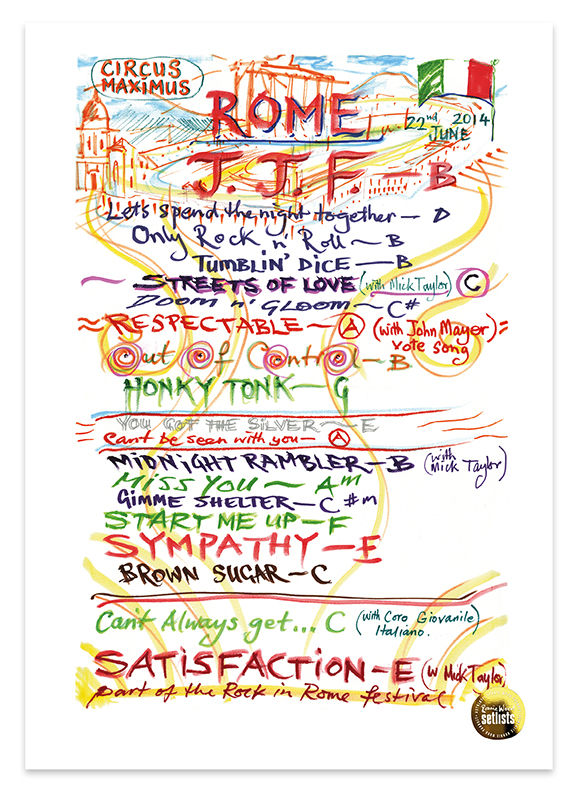 CIRCUS
MAXIMUS
ROME
22nd JUNE 2014
J.J.F. – B
Let's spend the night together – D
Only Rock n' Roll ~ B
TUMBLIN' DICE – B
~ STREETS OF LOVE (with Mick Taylor) C
DOOM n' GLOOM – C#
≈ RESPECTABLE ~ A (with John Mayer) ≈
vote song
Out Of Control – B
HONKY TONK – G
YOU GOT THE SILVER – E
Can't be seen with you – A
MIDNIGHT RAMBLER – B (with Mick Taylor)
MISS YOU – Am
GIMME SHELTER – C#m
START ME UP – F
SYMPATHY – E
BROWN SUGAR – C
Can't Always get... C (with Coro Giovanile
Italiano.
SATISFACTION – E (w Mick Taylor)
part of the Rock in Rome festival
Ronnie Wood
setlists